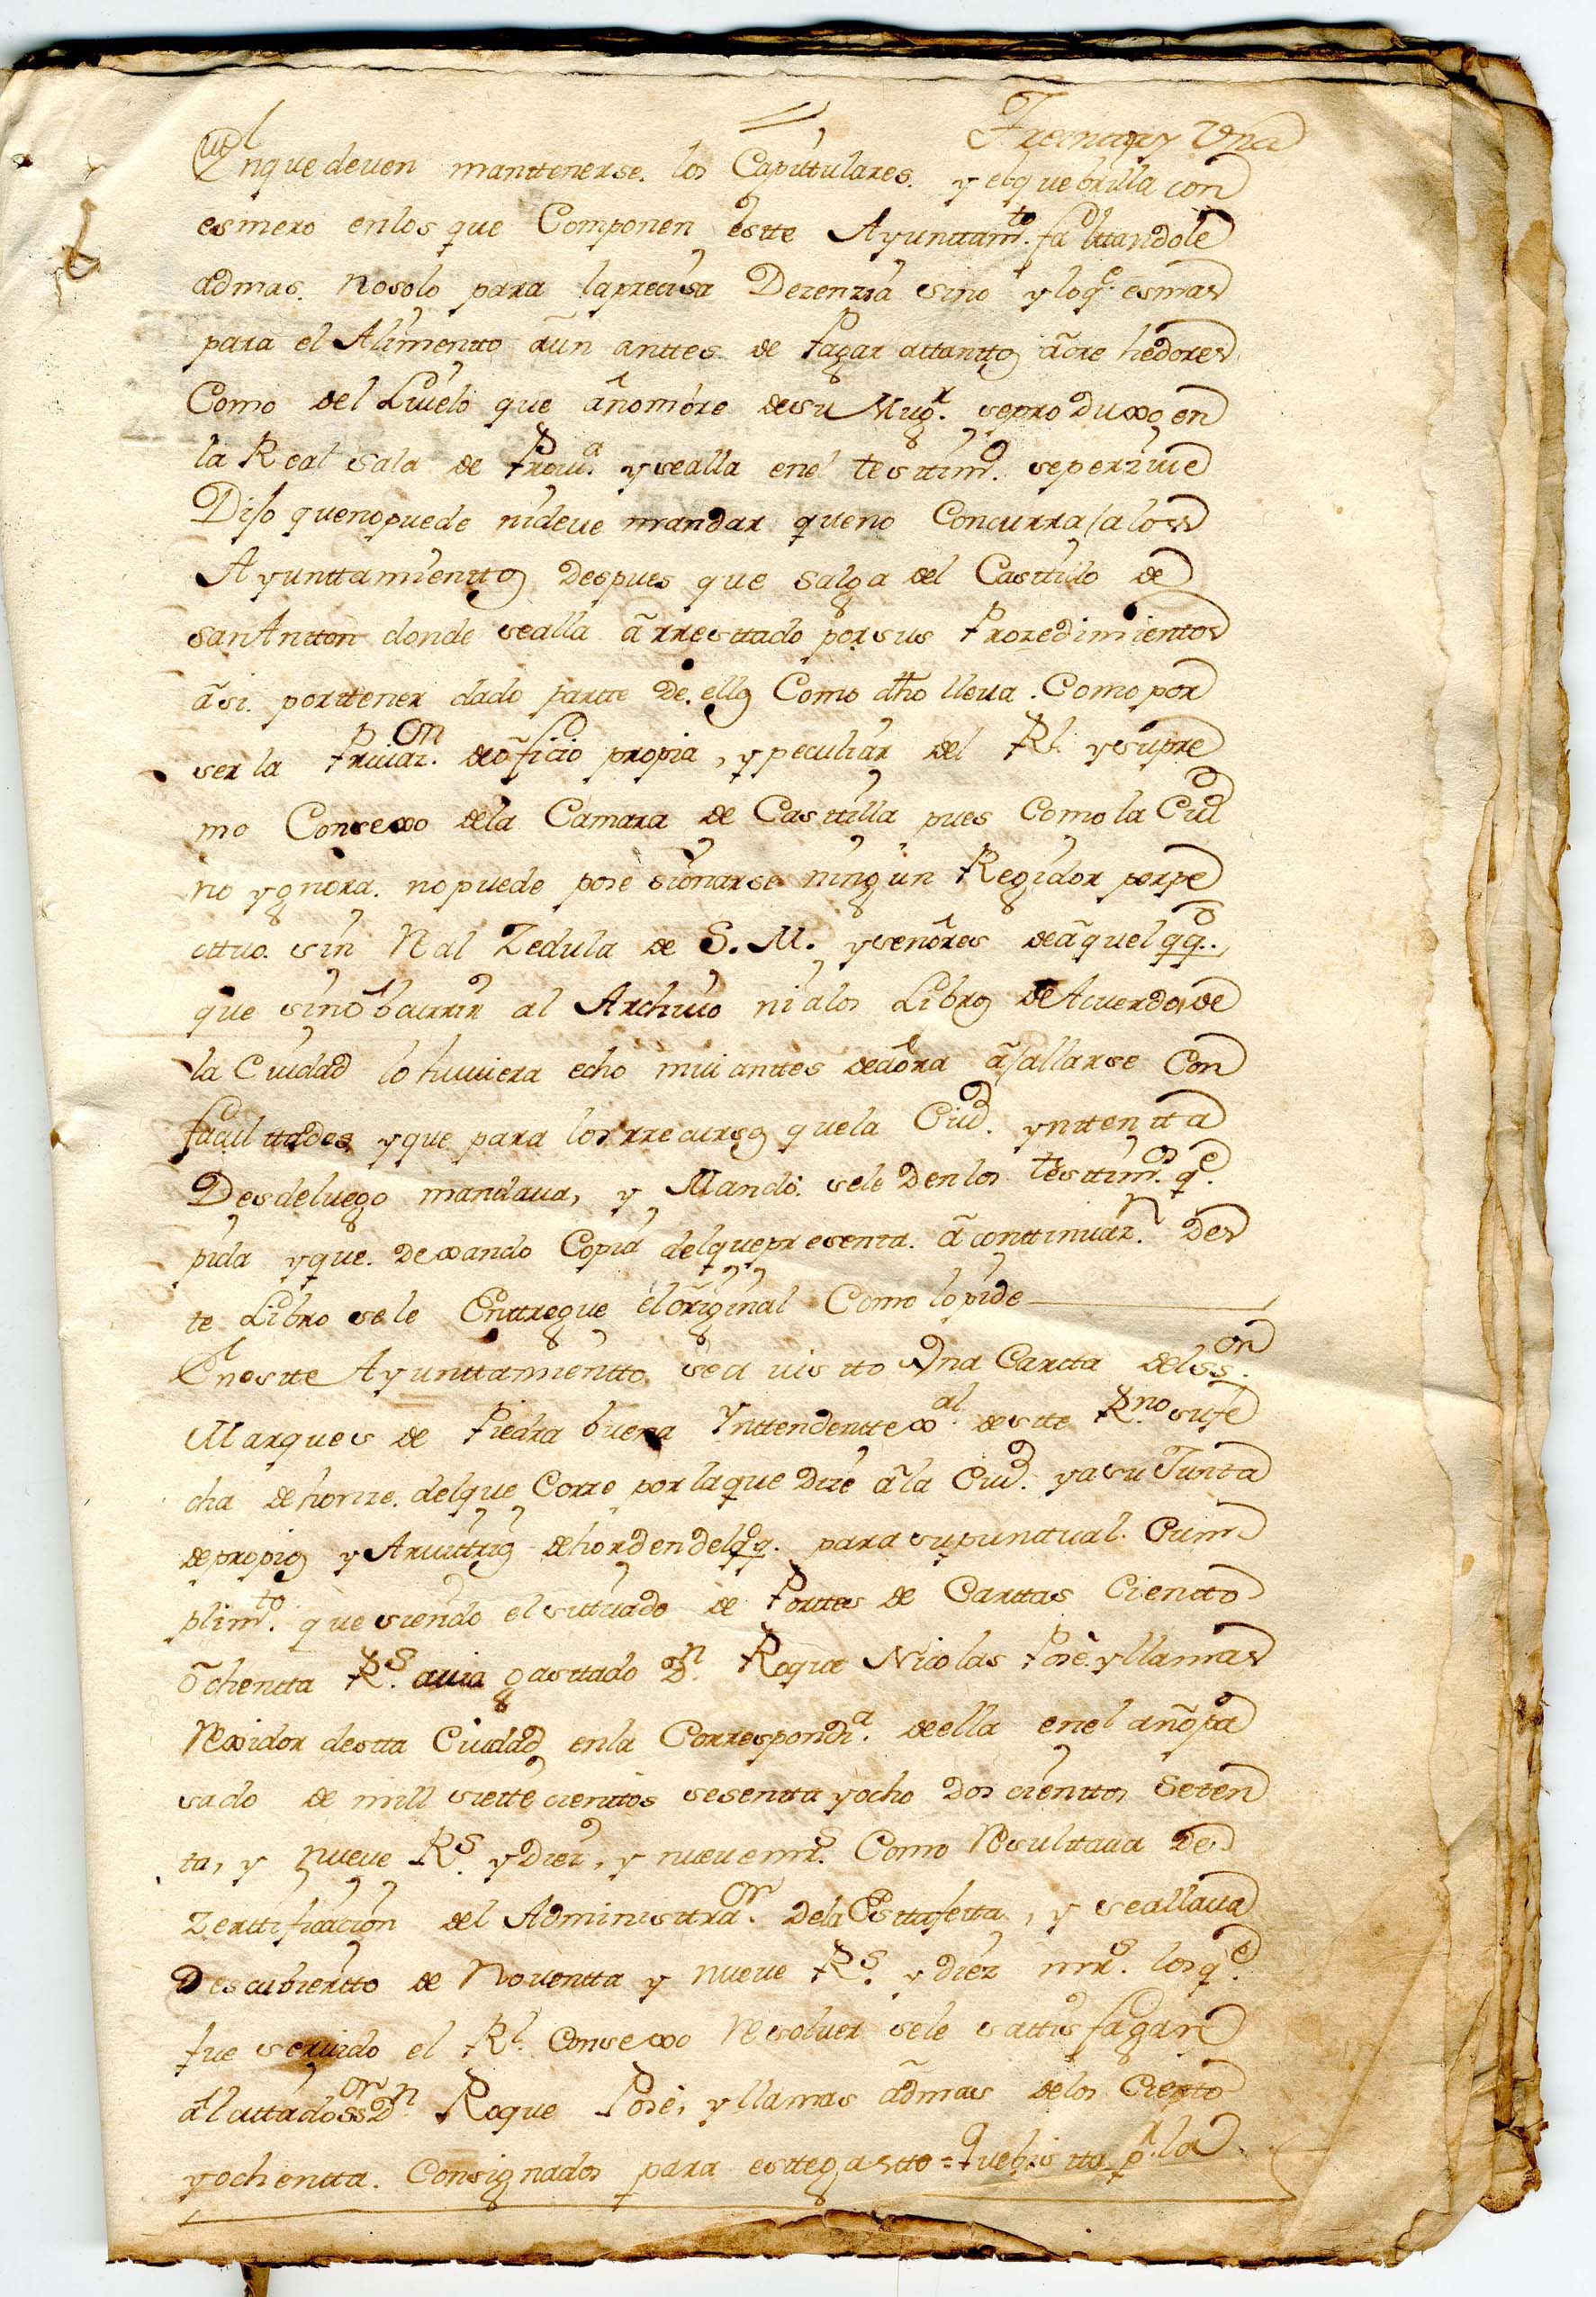 Treinta y Una
enque deven manttenerse. los Capitulares. y el que brilla con
esmero enlos que Componen estte Ayunttam.to faltandole
ademas. no solo para la precisa Dezenzia sino y lo q.e es mas
para el Alimentto aun anttes de Pagar attantto acrehedores
Como del Livelo que anombre desu Mug.r seproduxo en
la Real Sala de Prov.a y sealla enel testtim.o se perzive
Dijo queno puede nideve mandar queno Concurra alos
Ayunttamienttos Despues que salga del Casttillo de
San Antton donde sealla arresttado porsus Prozedimientos
asi. porttener dado partte De.ellos Como dho lleva. Como por
ser la Privaz.on de oficio propia, y peculiar del Rl. y supre
mo Consexo dela Camara de Casttilla pues Como la Ciud
no ygnora. no puede posesionarse ningun Regidor perpe
ttuo. sin Real Zedula de S. M. y señores de aquel
que sino bairrin al Archivo ni alos Libros de Acuerdos de
la Ciudad lo huviera echo mui anttes de aora a allarse Con
facultades y que para los rrecursos que la Ciud. yntentta
Desdeluego mandava, y Mando. sele Den los testtim.os q.e
pida y que. Dexando Copia del que presenta. a conttinuaz.n Des
te Libro se le Enttregue el original Como lo pide
En estte Ayunttamientto sea vistto Una Cartta del ss.or
Marques de Piedra buena Ynttendentte xal. de stte R.no su fe
cha de honze. del que Corre por la que Dize a la Ciud. y a su Junta
de propios y Arvittrios de horden del para su puntual. Cum
plim.to que siendo el situado de Porttes de Carttas Cientto
ochentta R.s avia gasttado D.n Roque Nicolas Posè. y llamas
Rexidor destta Ciudad enla Correspondi.a de ella enel año pa
sado de mill siette cienttos sesentta y ocho Dos cienttos Seten
ta, y nueve R.s y Diez, y nueve mr.s Como Resulttava De
Zerttificacion del Administtra.or Dela Esttafetta, y seallava
Descubiertto de Noventta y nueve R.s y diez mr.s los q.e
fue servido el Rl. Consexo Resolver sele sattisfagan
al cittado ss.or D.n Roque Posè, y llamas ademas delos Ciento
y ochentta. Consignados para estte gastto = Quebistta p.r la